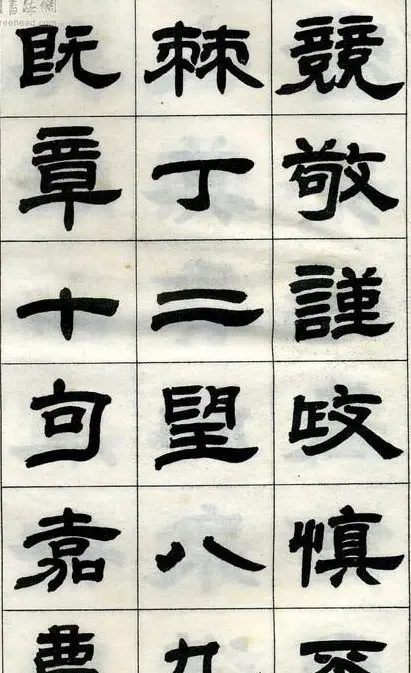 書法網
reehead.com
競敬謹政慎不
棘丁二望八九
既章十句嘉